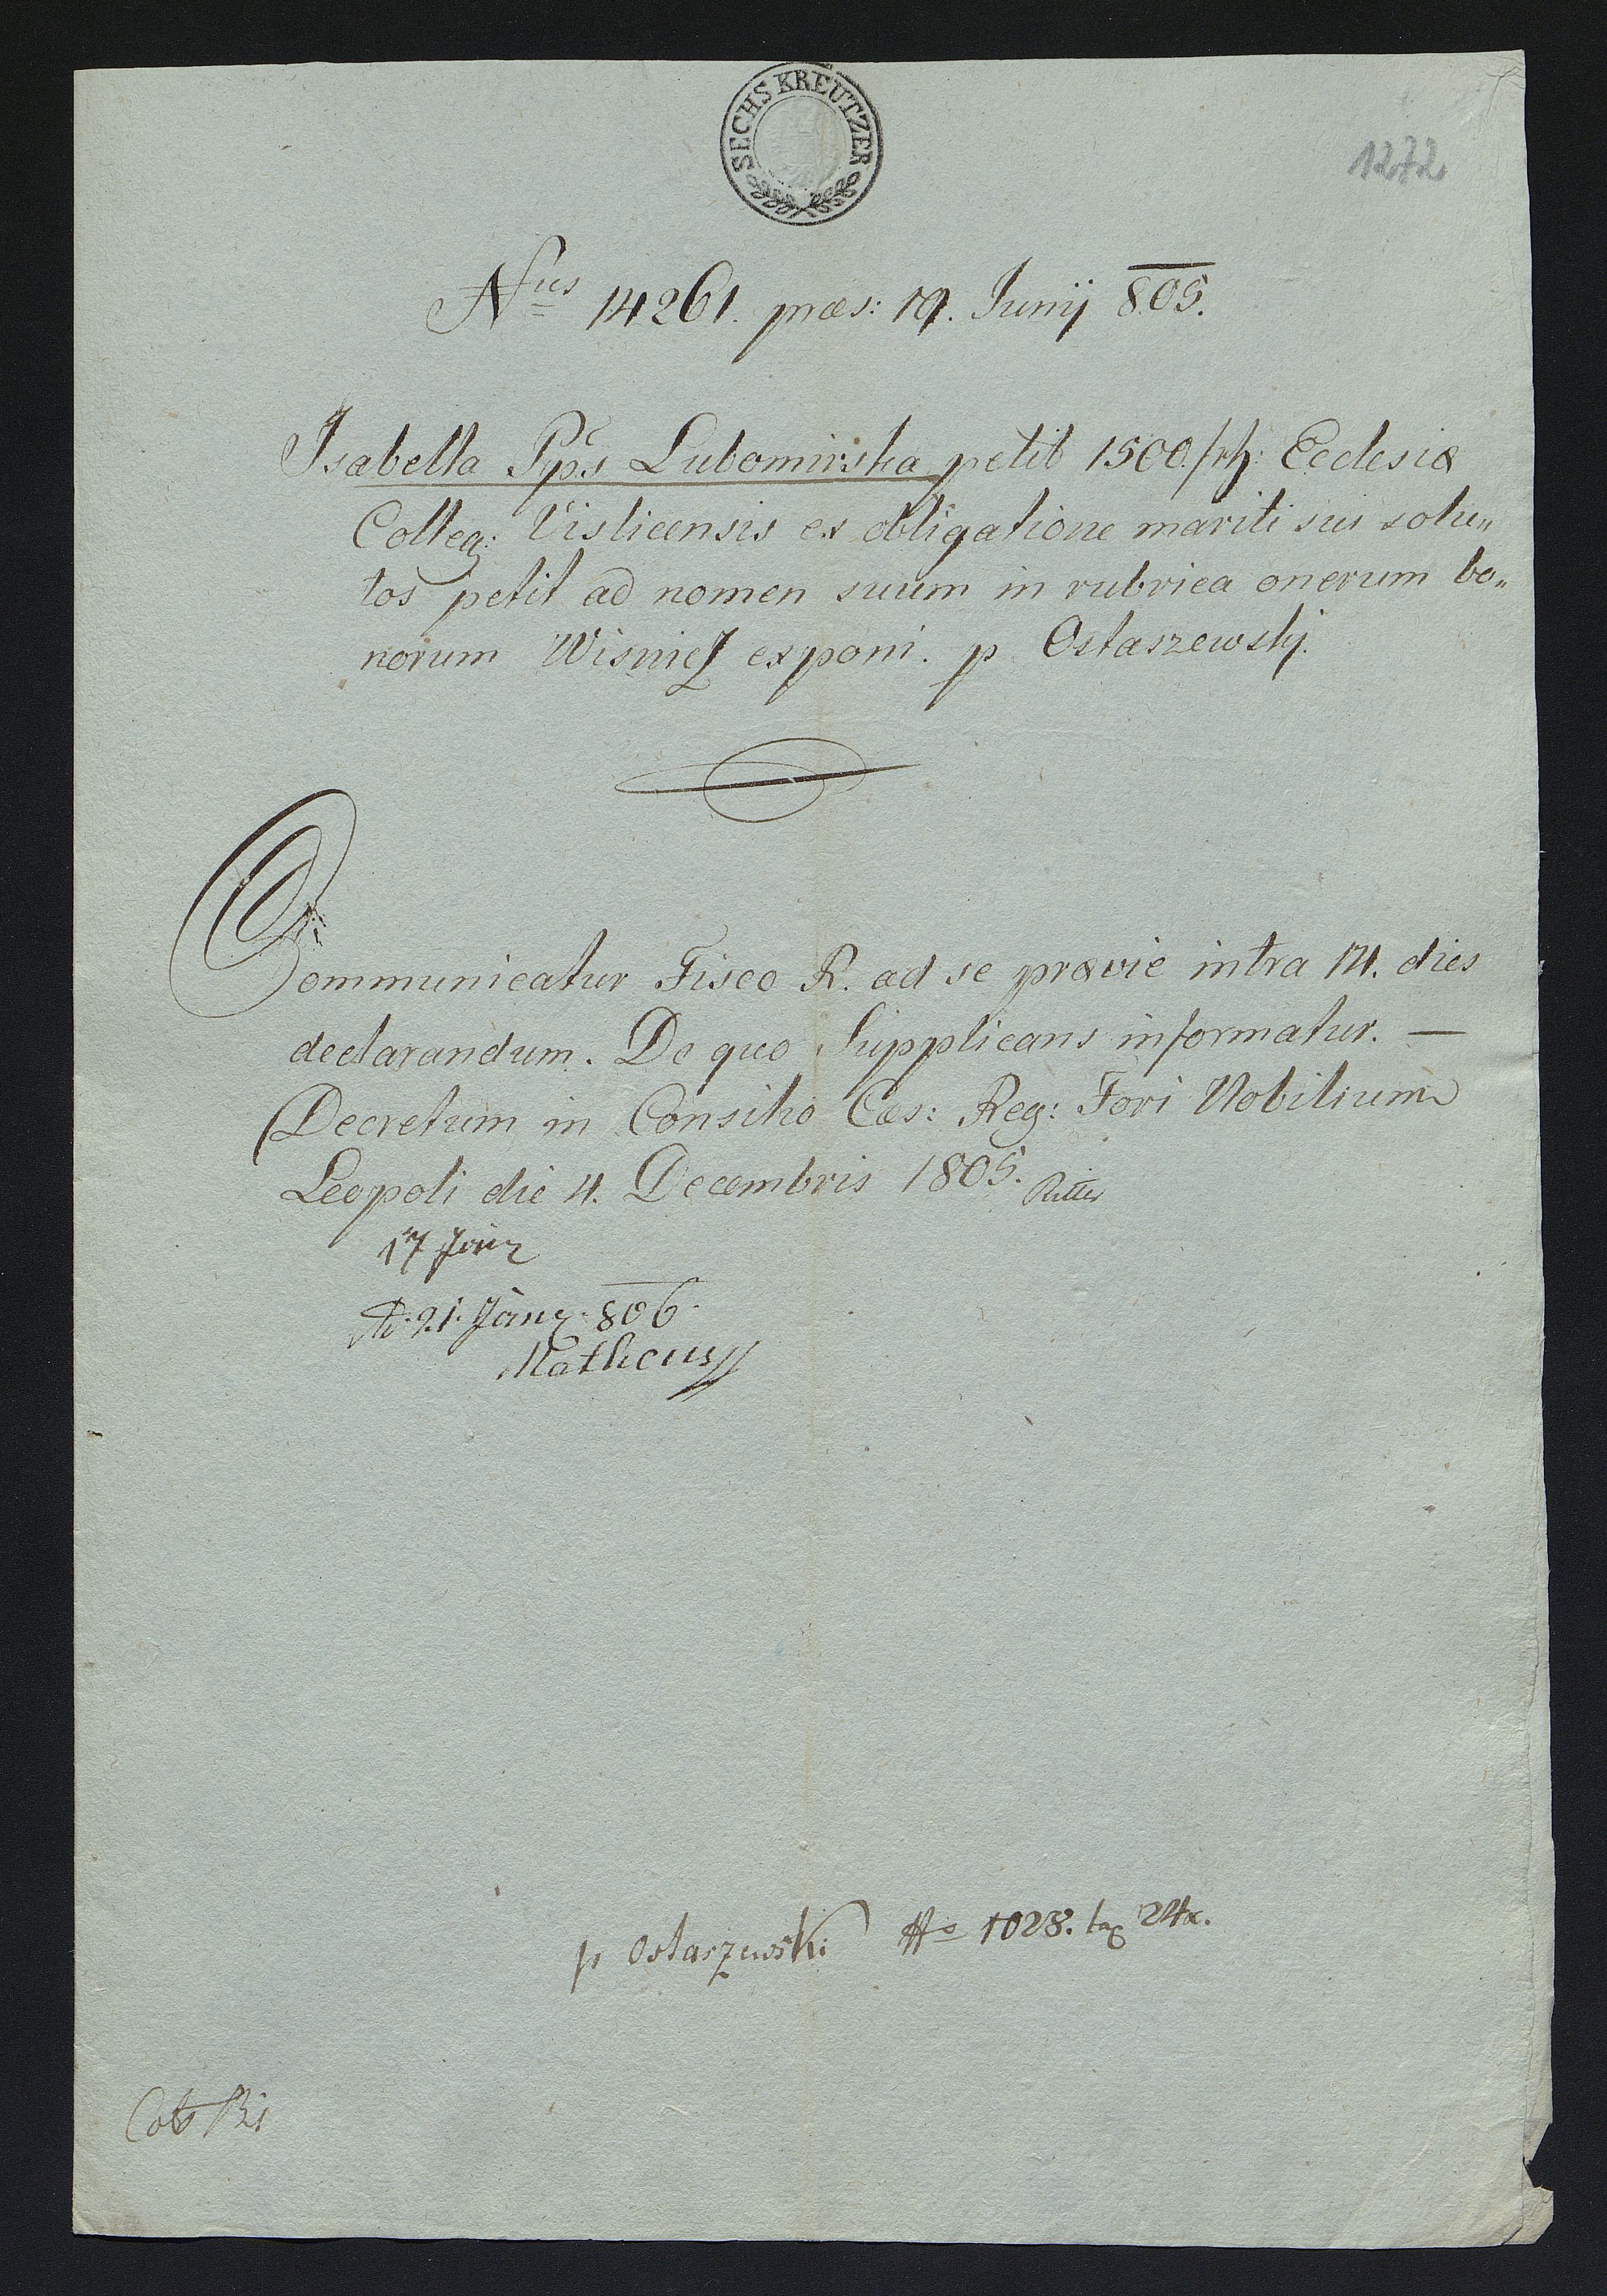 SECHS KREUTZER
1272
Nrus 14261. praes: 19. Junij 805.
Isabella Pps Lubomirska petit 1500 frh: Ecclesiæ
Colleg: Visliceensis ex obligatione mariti sui solu„
tos petit ad nomen suum in rubrica onerum bo„
norum Wisnicz exponi. p Ostaszewskj.
Communicatur Fisco R. ad se prævie intra 14. dies
declarandum. De quo Supplicans informatur. —
Decretum in Consilio Cæs: Reg: Fori Nobilium
Leopoli die 4. Decembris 1805. Ritter
17 Jäner
21. Jäner 806.
Matheus
p Ostaszewski No 1028. tax 24x.